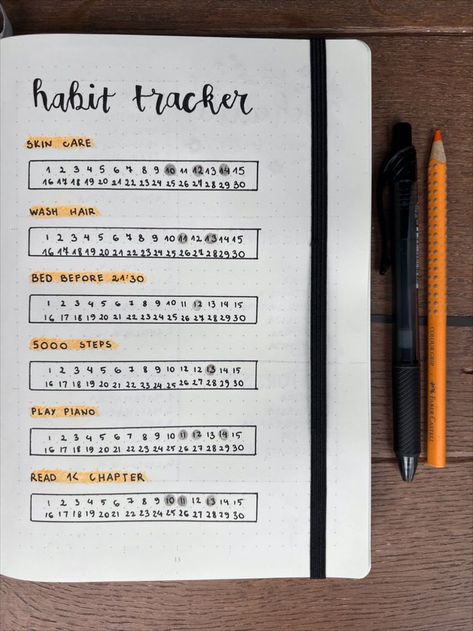 habit tracker
SKIN CARE
1 2 3 4 5 6 7 8 9 10 11 12 13 14 15
16 17 18 19 20 21 22 23 24 25 26 27 28 29 30
WASH HAIR
1 2 3 4 5 6 7 8 9 10 11 12 13 14 15
16 17 18 19 20 21 22 23 24 25 26 27 28 29 30
BED BEFORE 21:30
1 2 3 4 5 6 7 8 9 10 11 12 13 14 15
16 17 18 19 20 21 22 23 24 25 26 27 28 29 30
5000 STEPS
1 2 3 4 5 6 7 8 9 10 11 12 13 14 15
16 17 18 19 20 21 22 23 24 25 26 27 28 29 30
PLAY PIANO
1 2 3 4 5 6 7 8 9 10 11 12 13 14 15
16 17 18 19 20 21 22 23 24 25 26 27 28 29 30
READ 1< CHAPTER
1 2 3 4 5 6 7 8 9 10 11 12 13 14 15
16 17 18 19 20 21 22 23 24 25 26 27 28 29 30